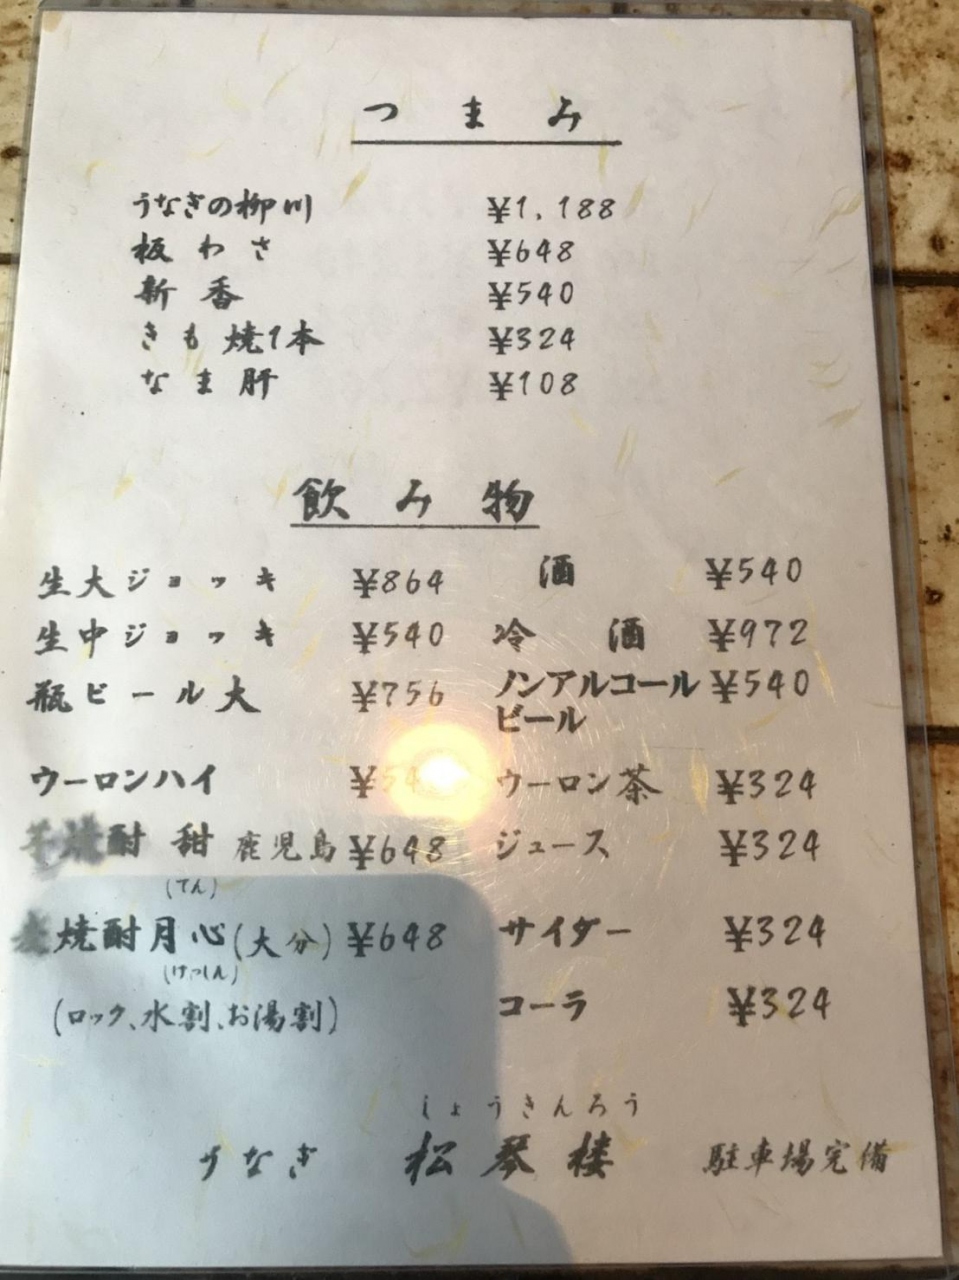 つまみ
うなぎの柳川 ¥1,188
板わさ ¥648
新香 ¥540
きも焼1本 ¥324
なま肝 ¥108
飲み物
生大ジョッキ ¥864 酒 ¥540
生中ジョッキ ¥540 冷酒 ¥972
瓶ビール大 ¥756 ノンアルコール ¥540
ビール
ウーロンハイ ウーロン茶 ¥324
焼酎 甜 鹿児島 ¥648 ジュース ¥324
(てん)
焼酎月心(大分) ¥648 サイダー ¥324
(けっしん)
(ロック、水割、お湯割) コーラ ¥324
しょうきんろう
うなぎ 松琴楼 駐車場完備